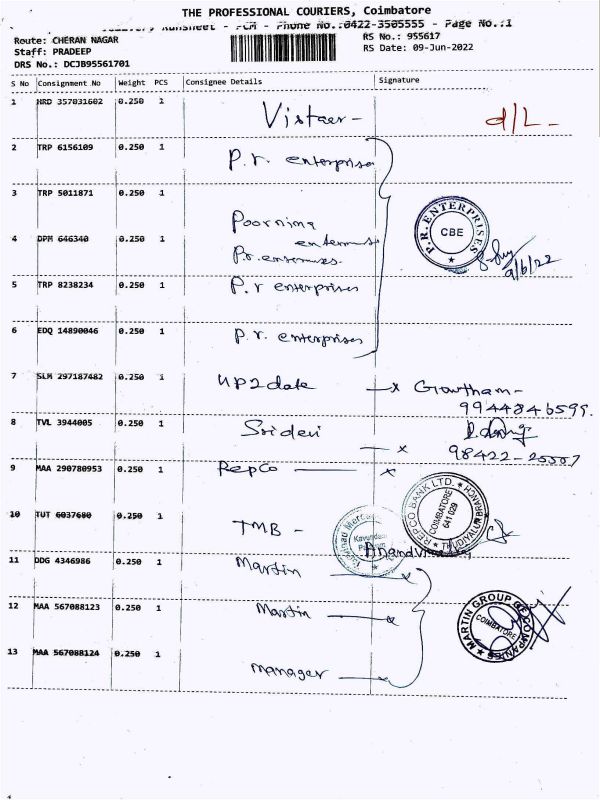 THE PROFESSIONAL COURIERS, Coimbatore
Delivery Runsheet - FCM - Phone No.:0422-3505555 - Page No.:1
Route: CHERAN NAGAR
Staff: PRADEEP
DRS No.: DCJB95561701
RS No.: 955617
RS Date: 09-Jun-2022
S No Consignment No Weight PCS Consignee Details Signature
1 HRD 357031602 0.250 1 Vistaer - d/L -
2 TRP 6156109 0.250 1 P.r. enterprises
3 TRP 5011871 0.250 1 Poornima
enterprises
4 DPM 646340 0.250 1 P.r. enterprises
P.R. ENTERPRISES
CBE
9/6/22
5 TRP 8238234 0.250 1 P.r enterprises
6 EDQ 14890046 0.250 1 P.r. enterprises
7 SLM 297187482 0.250 1 UP2date x Gowtham -
9944846599.
8 TVL 3944005 0.250 1 Sridevi x
98422-25507
9 MAA 290780953 0.250 1 Repco x
REPCO BANK LTD.
COIMBATORE
641 029
10 TUT 6037680 0.250 1 TMB -
11 DDG 4346986 0.250 1 Martin x
12 MAA 567088123 0.250 1 Martin x
MARTIN GROUP OF COMPANIES
COIMBATORE
13 MAA 567088124 0.250 1 manager x